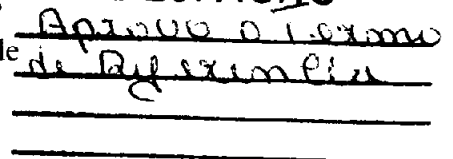 Aprovo o Termo
le de Referência